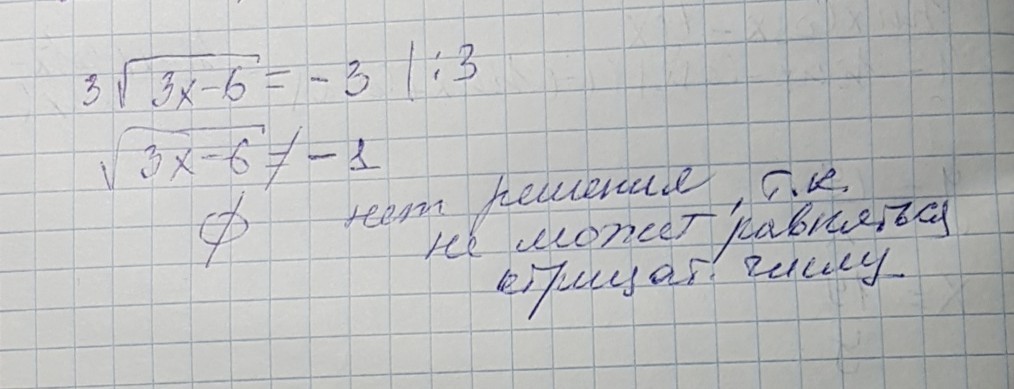 3√(3x-6) = -3 | :3
√(3x-6) ≠ -1
∅ нет решения, т.к.
не может равняться
отрицат. числу